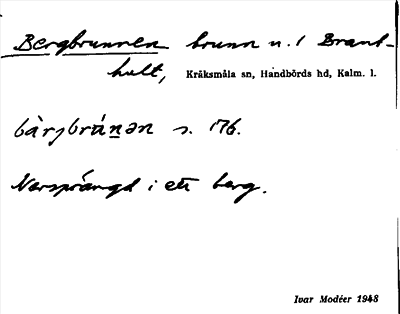 Bergbrunnen brunn n. 1 Brant-
hult, Kråksmåla sn, Handbörds hd, Kalm. l.
bàrjbrúnən s. 176.
Nersprängd i ett berg.
Ivar Modéer 1948